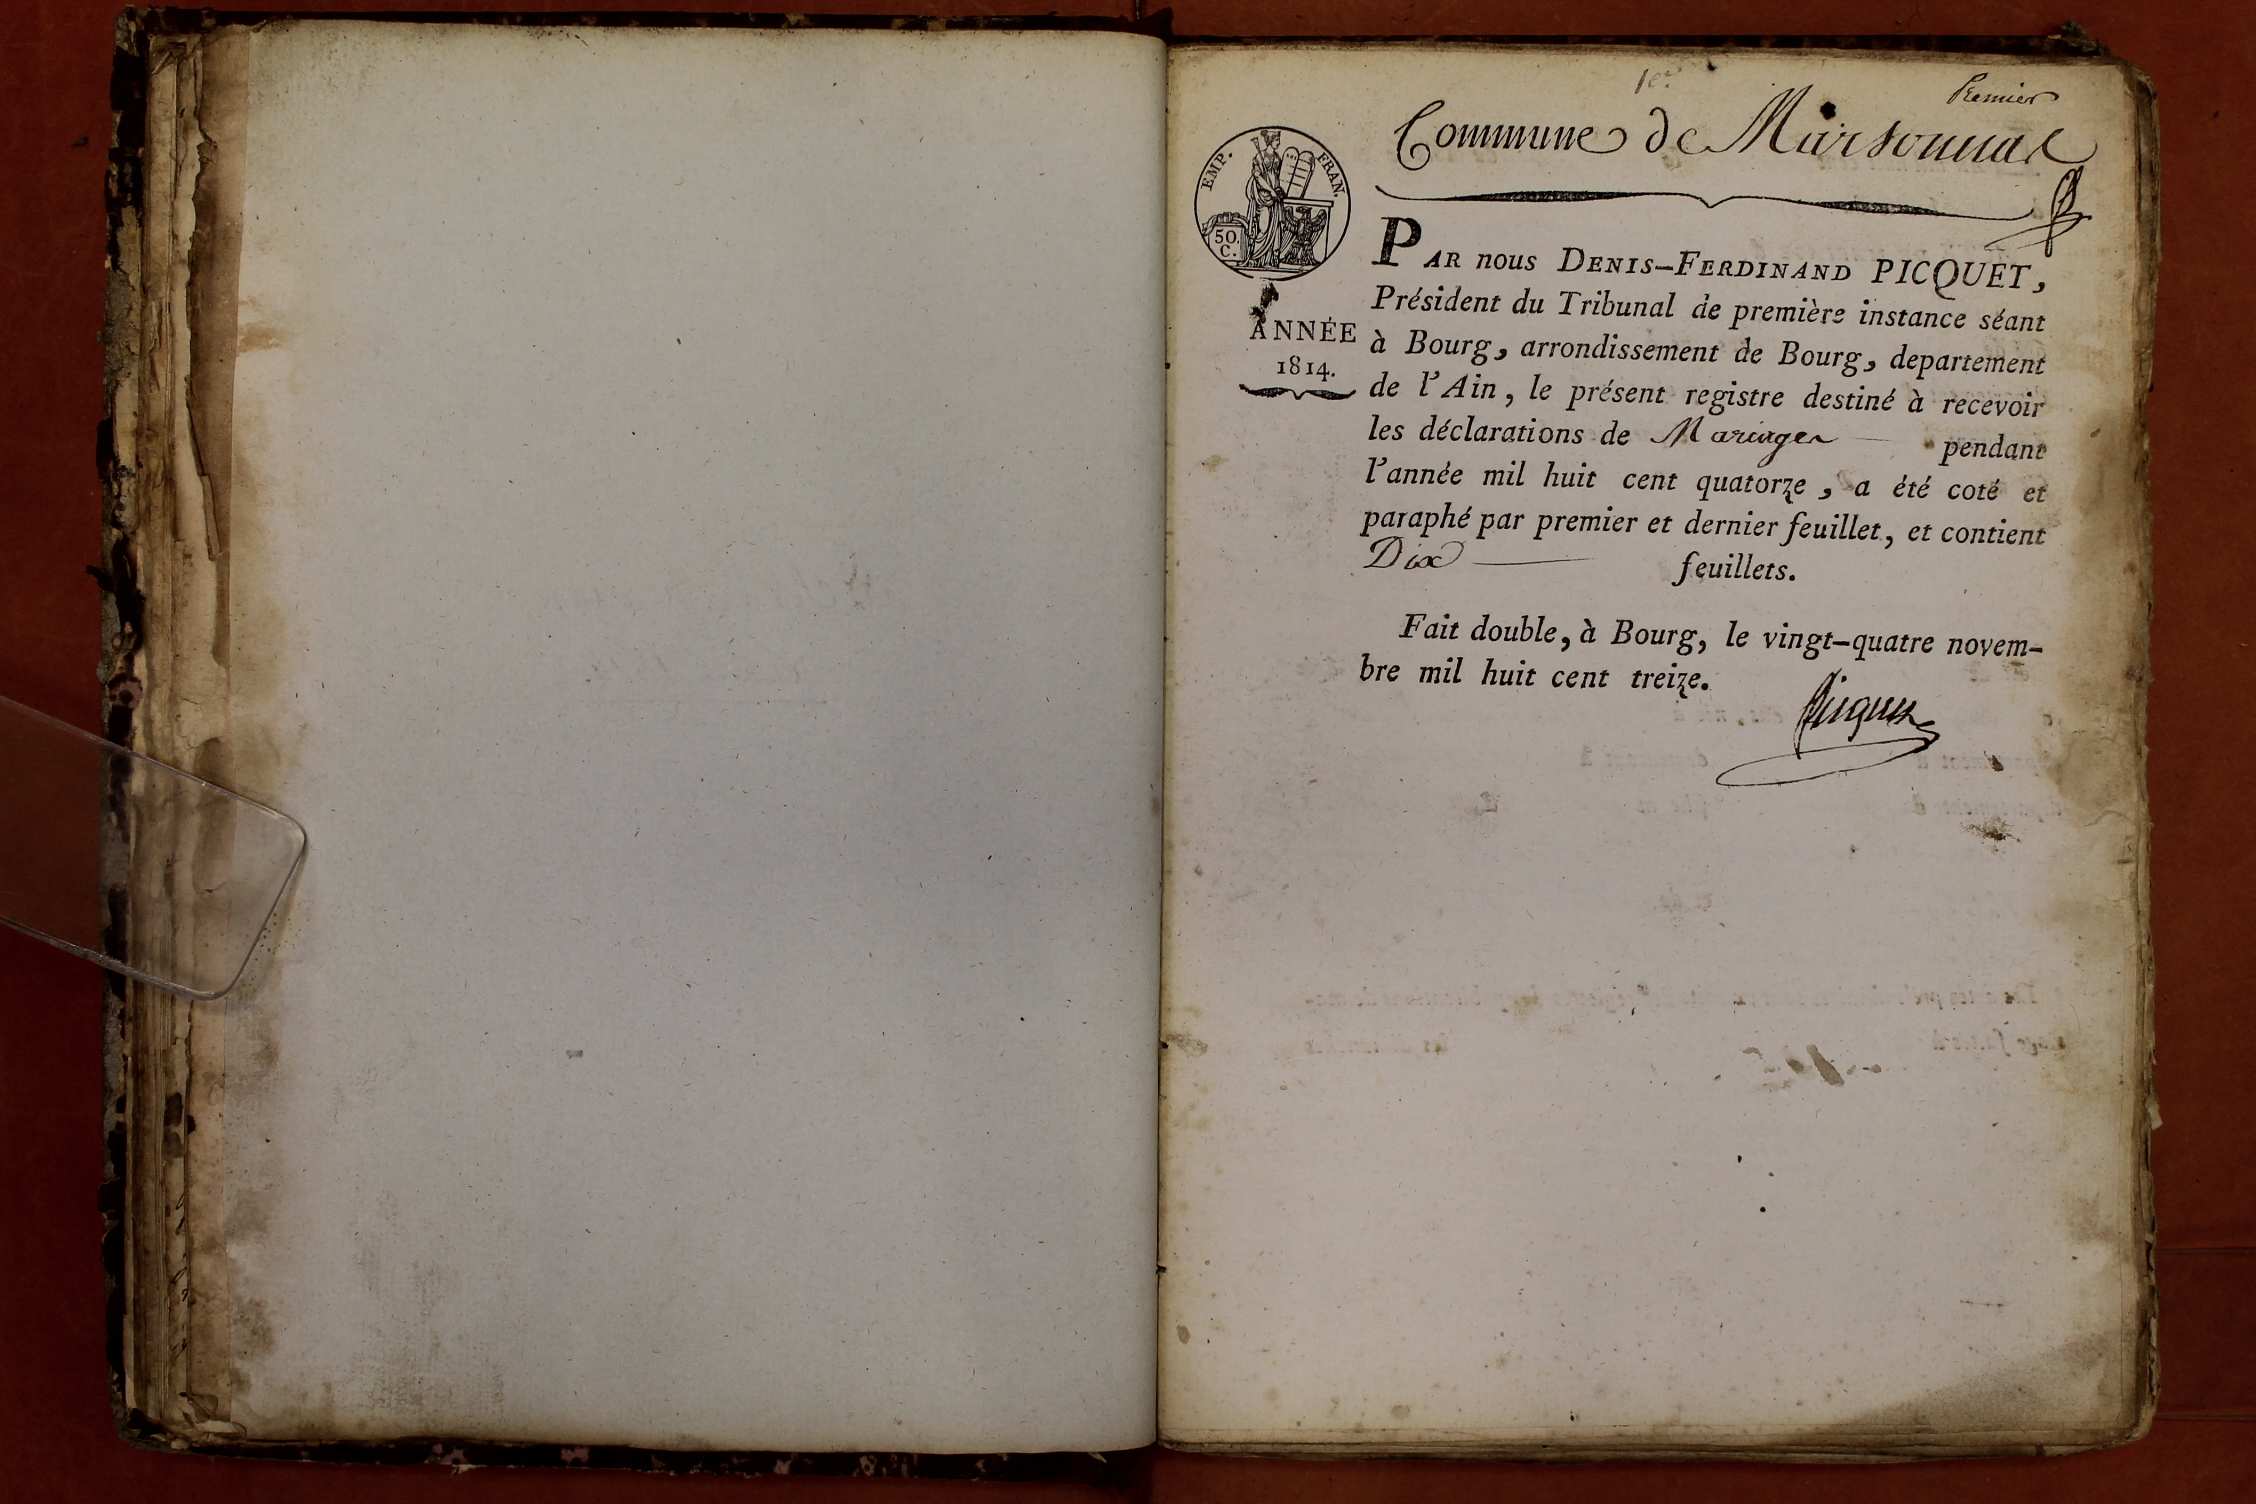 1er.
Premier
Commune de Marsonnas
EMP. FRAN.
50.
C.
ANNÉE
1814.
PAR nous DENIS-FERDINAND PICQUET,
Président du Tribunal de première instance séant
à Bourg, arrondissement de Bourg, departement
de l'Ain, le présent registre destiné à recevoir
les déclarations de Mariages pendant
l'année mil huit cent quatorze, a été coté et
paraphé par premier et dernier feuillet, et contient
Dix feuillets.
Fait double, à Bourg, le vingt-quatre novem-
bre mil huit cent treize.
Picquet